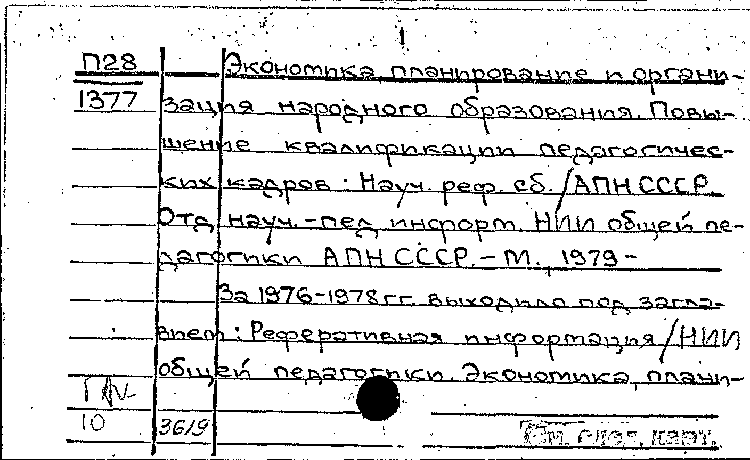 П28 Экономика планирование и органи-
1377 зация народного образования. Повы-
шение квалификации педагогичес-
ких кадров: Науч. реф. сб. / АПН СССР.
Отд науч.-пед информ. НИИ общей пе-
дагогики АПН СССР. - М., 1979 -
За 1976-1978 гг. выходило под загла-
вием: Реферативная информация / НИИ
общей педагогики. Экономика, плани-
10 3619 См. след. карт.